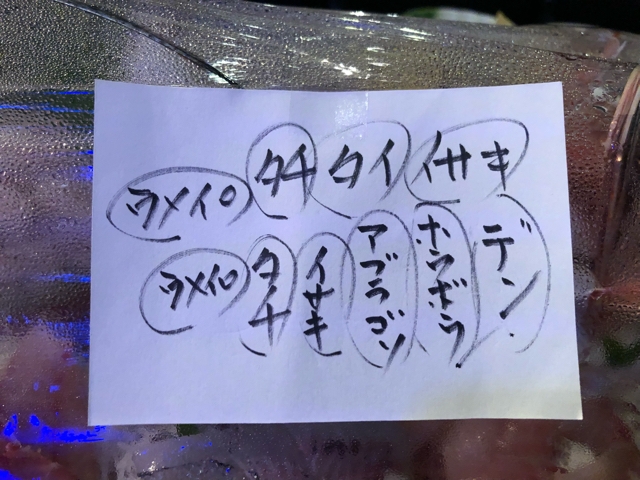 ウメイロ タチ タイ イサキ
ウメイロ タチ イサキ アブラゴソ ホウボウ デン